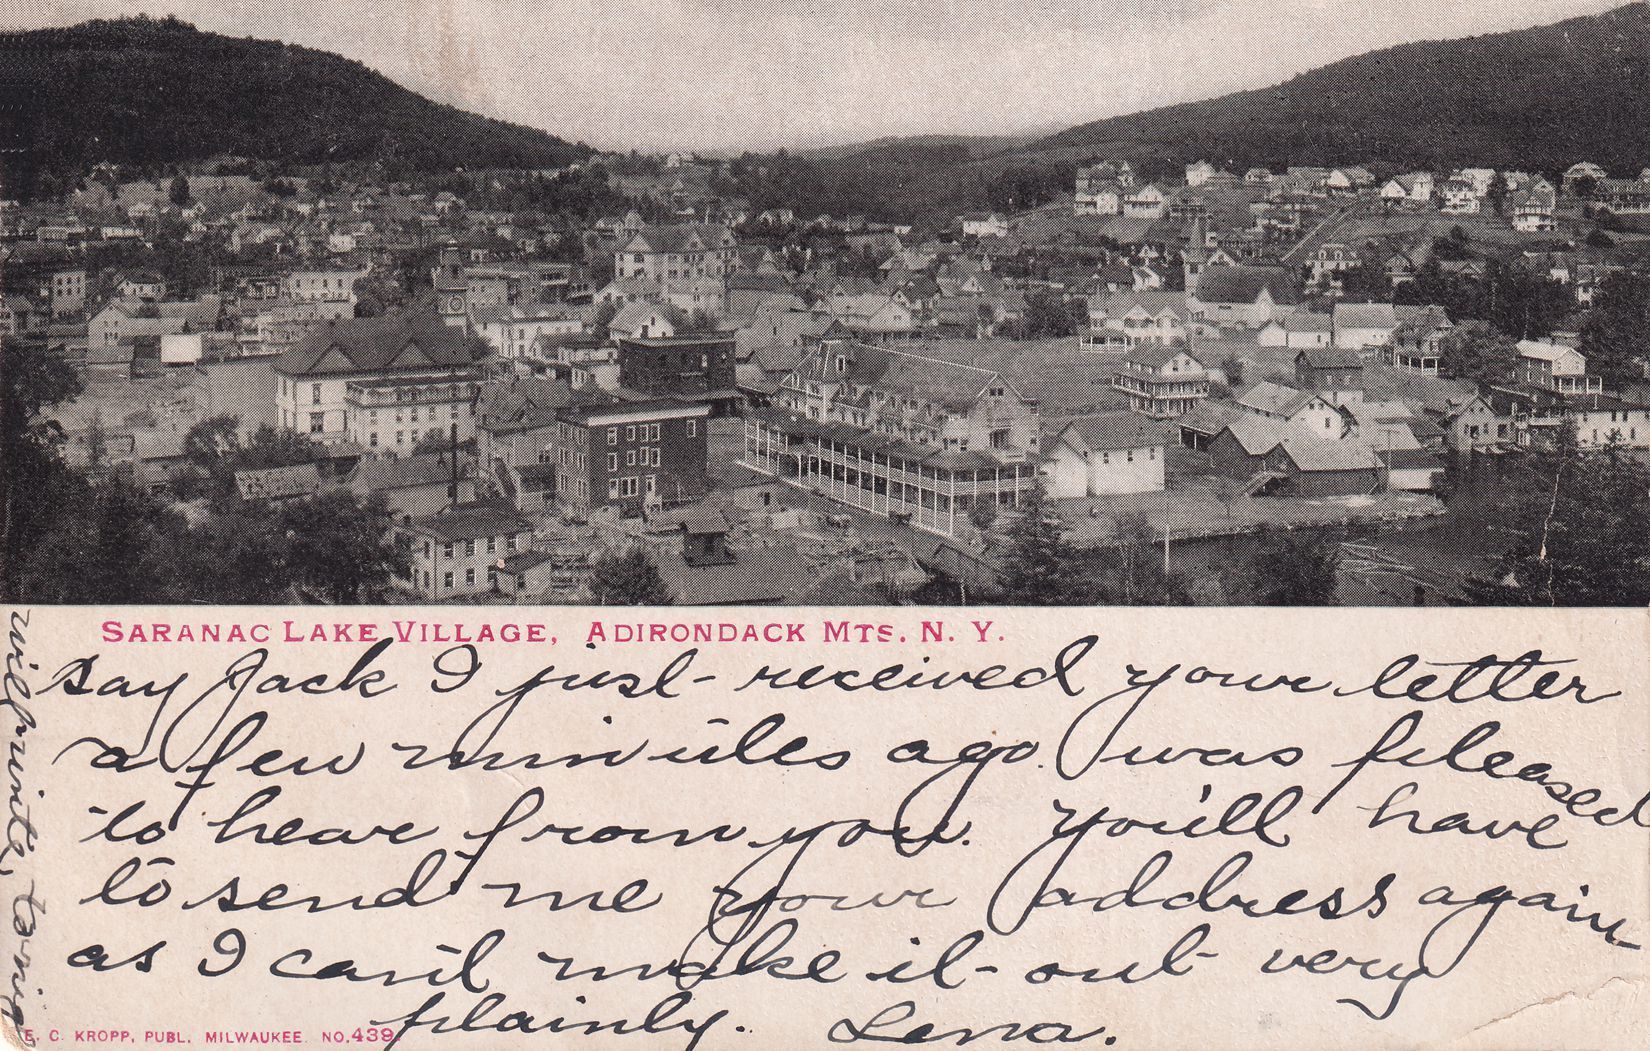 SARANAC LAKE VILLAGE, ADIRONDACK MTS. N. Y.
Say Jack I just received your letter
a few minutes ago. was pleased
to hear from you. You'll have
to send me your address again
as I can't make it out very
plainly. Lena.
will write, to-nig
E. C. KROPP, PUBL. MILWAUKEE. NO. 439.